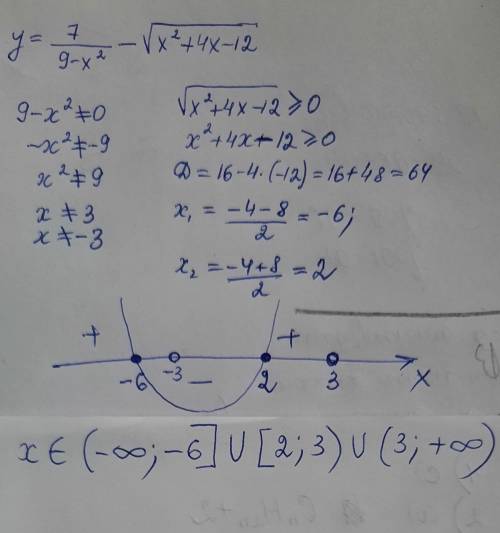 y = 7/(9-x²) - √(x²+4x-12)
9-x²≠0
-x²≠-9
x²≠9
x≠3
x≠-3
√(x²+4x-12) ⩾0
x²+4x-12⩾0
D = 16-4·(-12) = 16+48 = 64
x₁ = (-4-8)/2 = -6;
x₂ = (-4+8)/2 = 2
+ +
-6 -3 − 2 3 x
x ∈ (-∞; -6] ∪ [2; 3) ∪ (3; +∞)